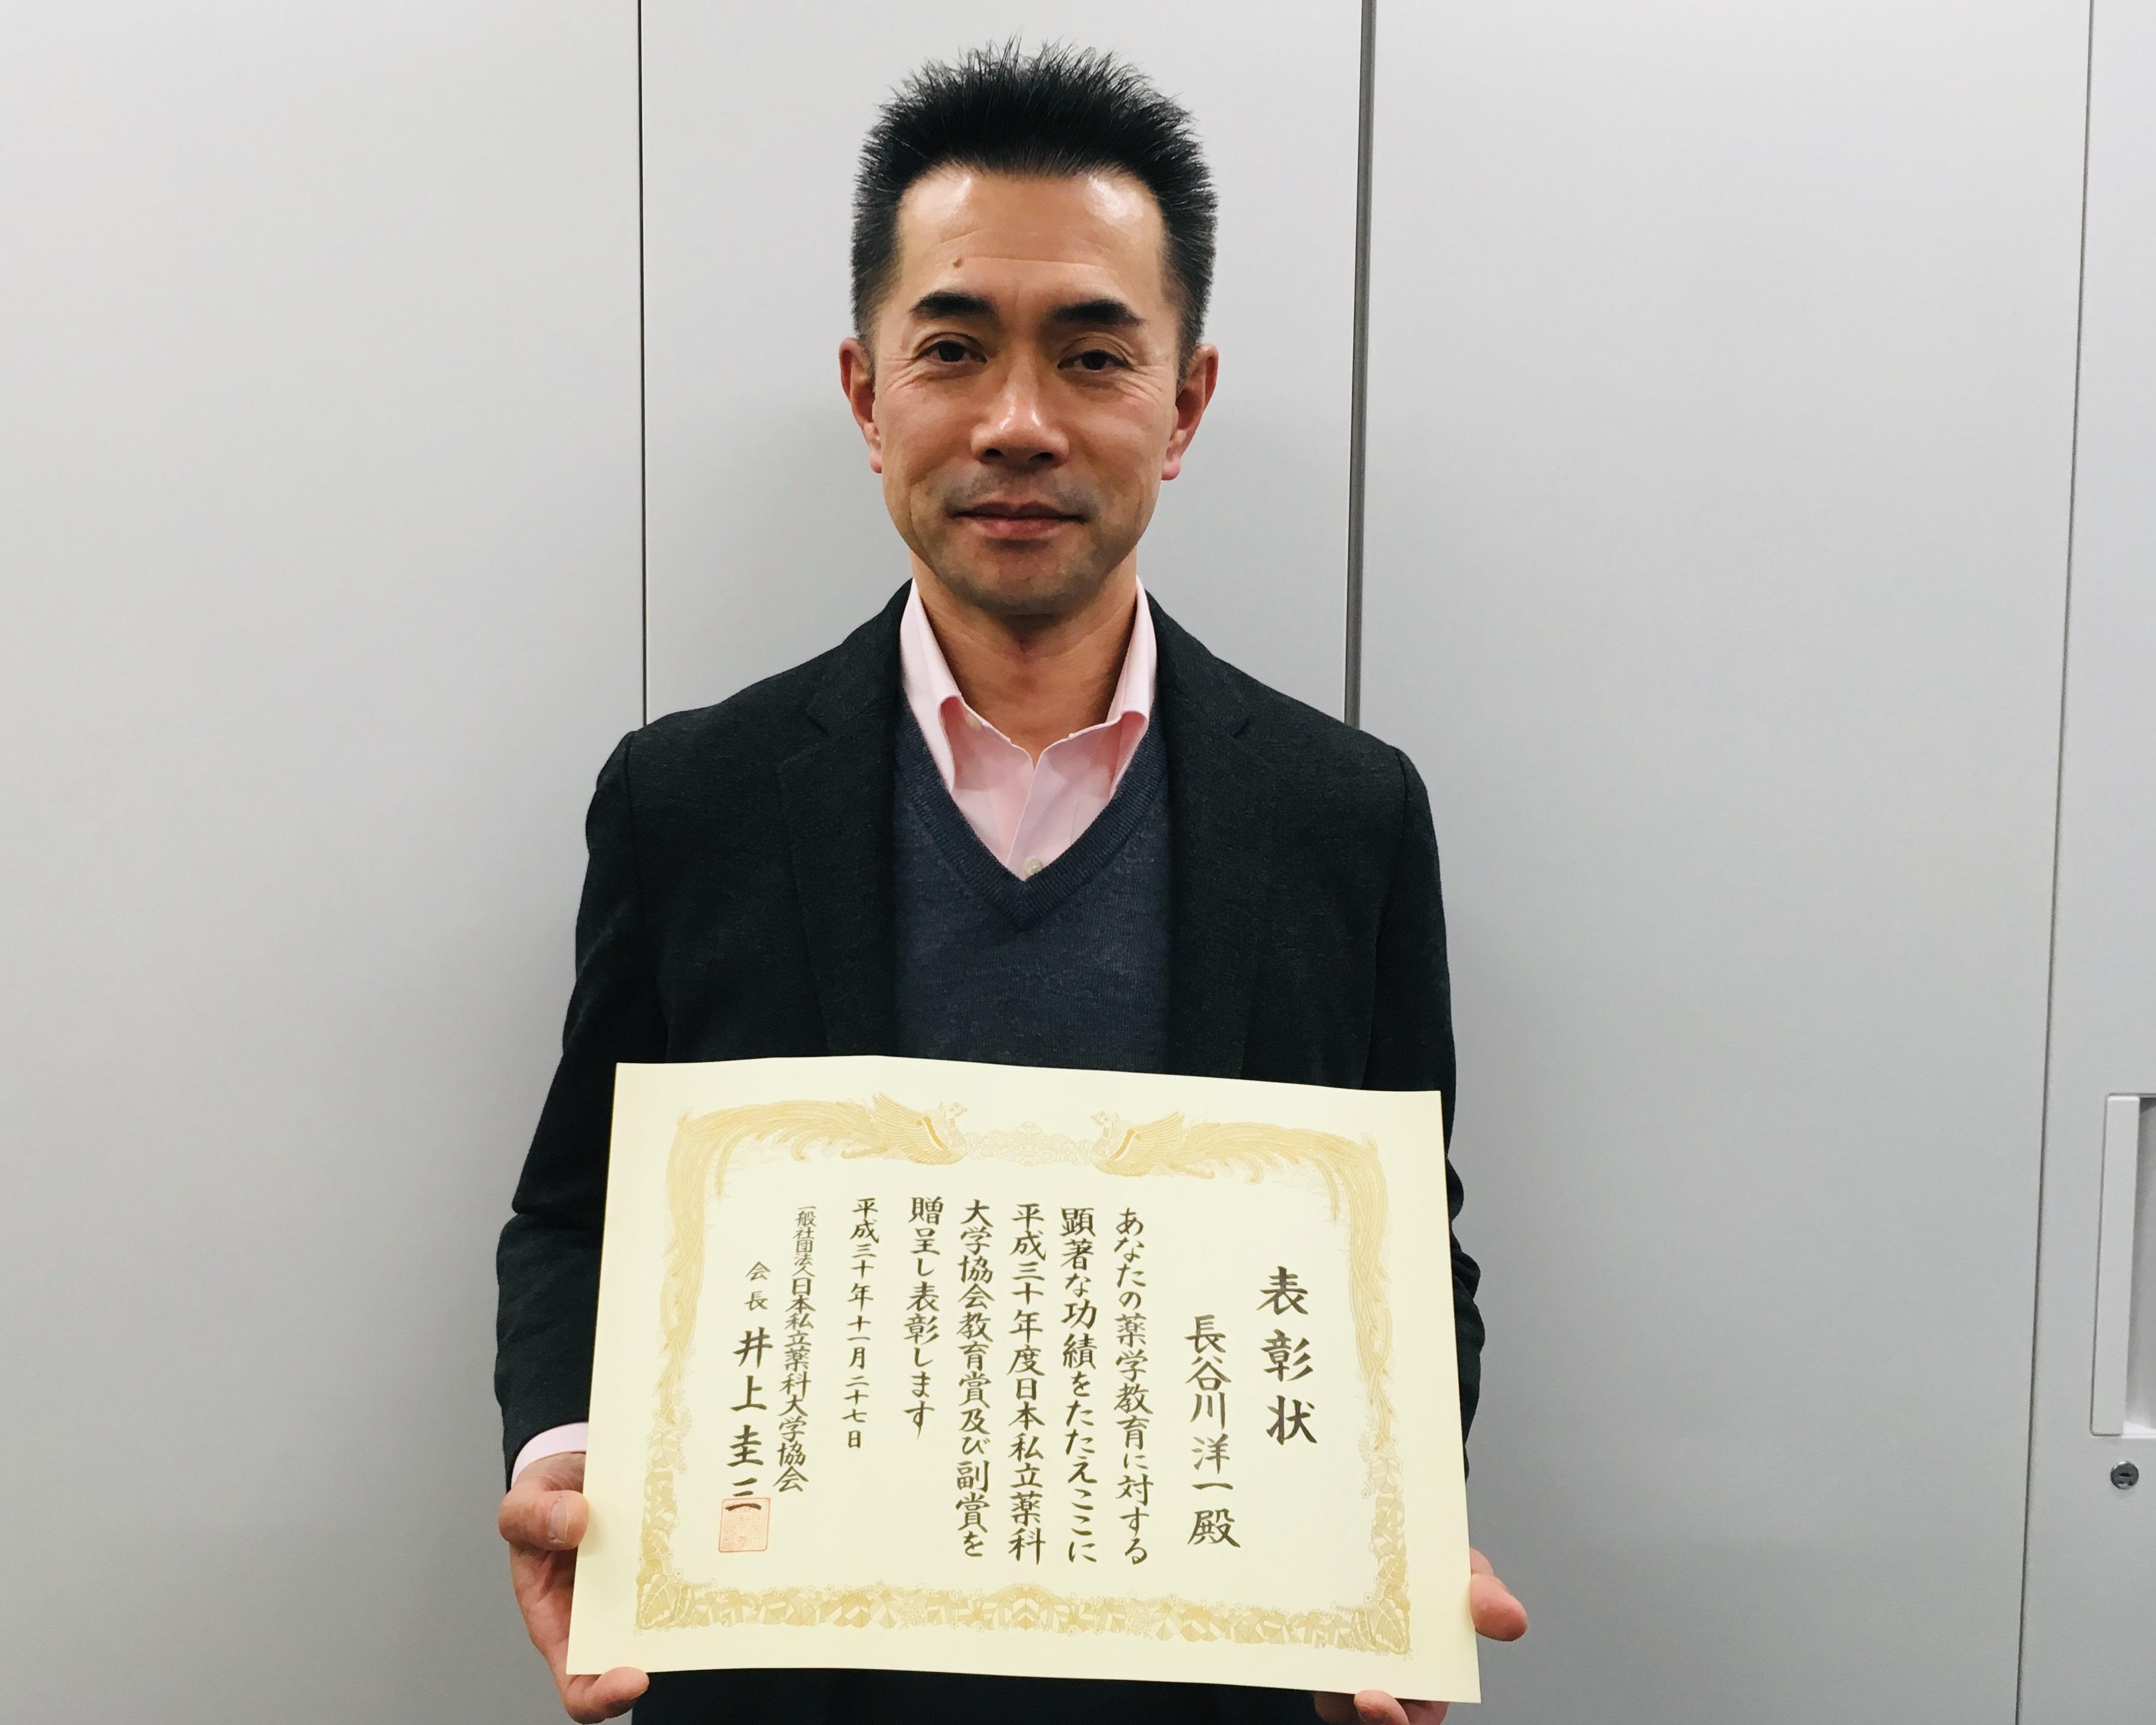 表彰状
長谷川洋一殿
あなたの薬学教育に対する
顕著な功績をたたえここに
平成三十年度日本私立薬科
大学協会教育賞及び副賞を
贈呈し表彰します
平成三十年十一月二十七日
一般社団法人日本私立薬科大学協会
会長 井上圭三